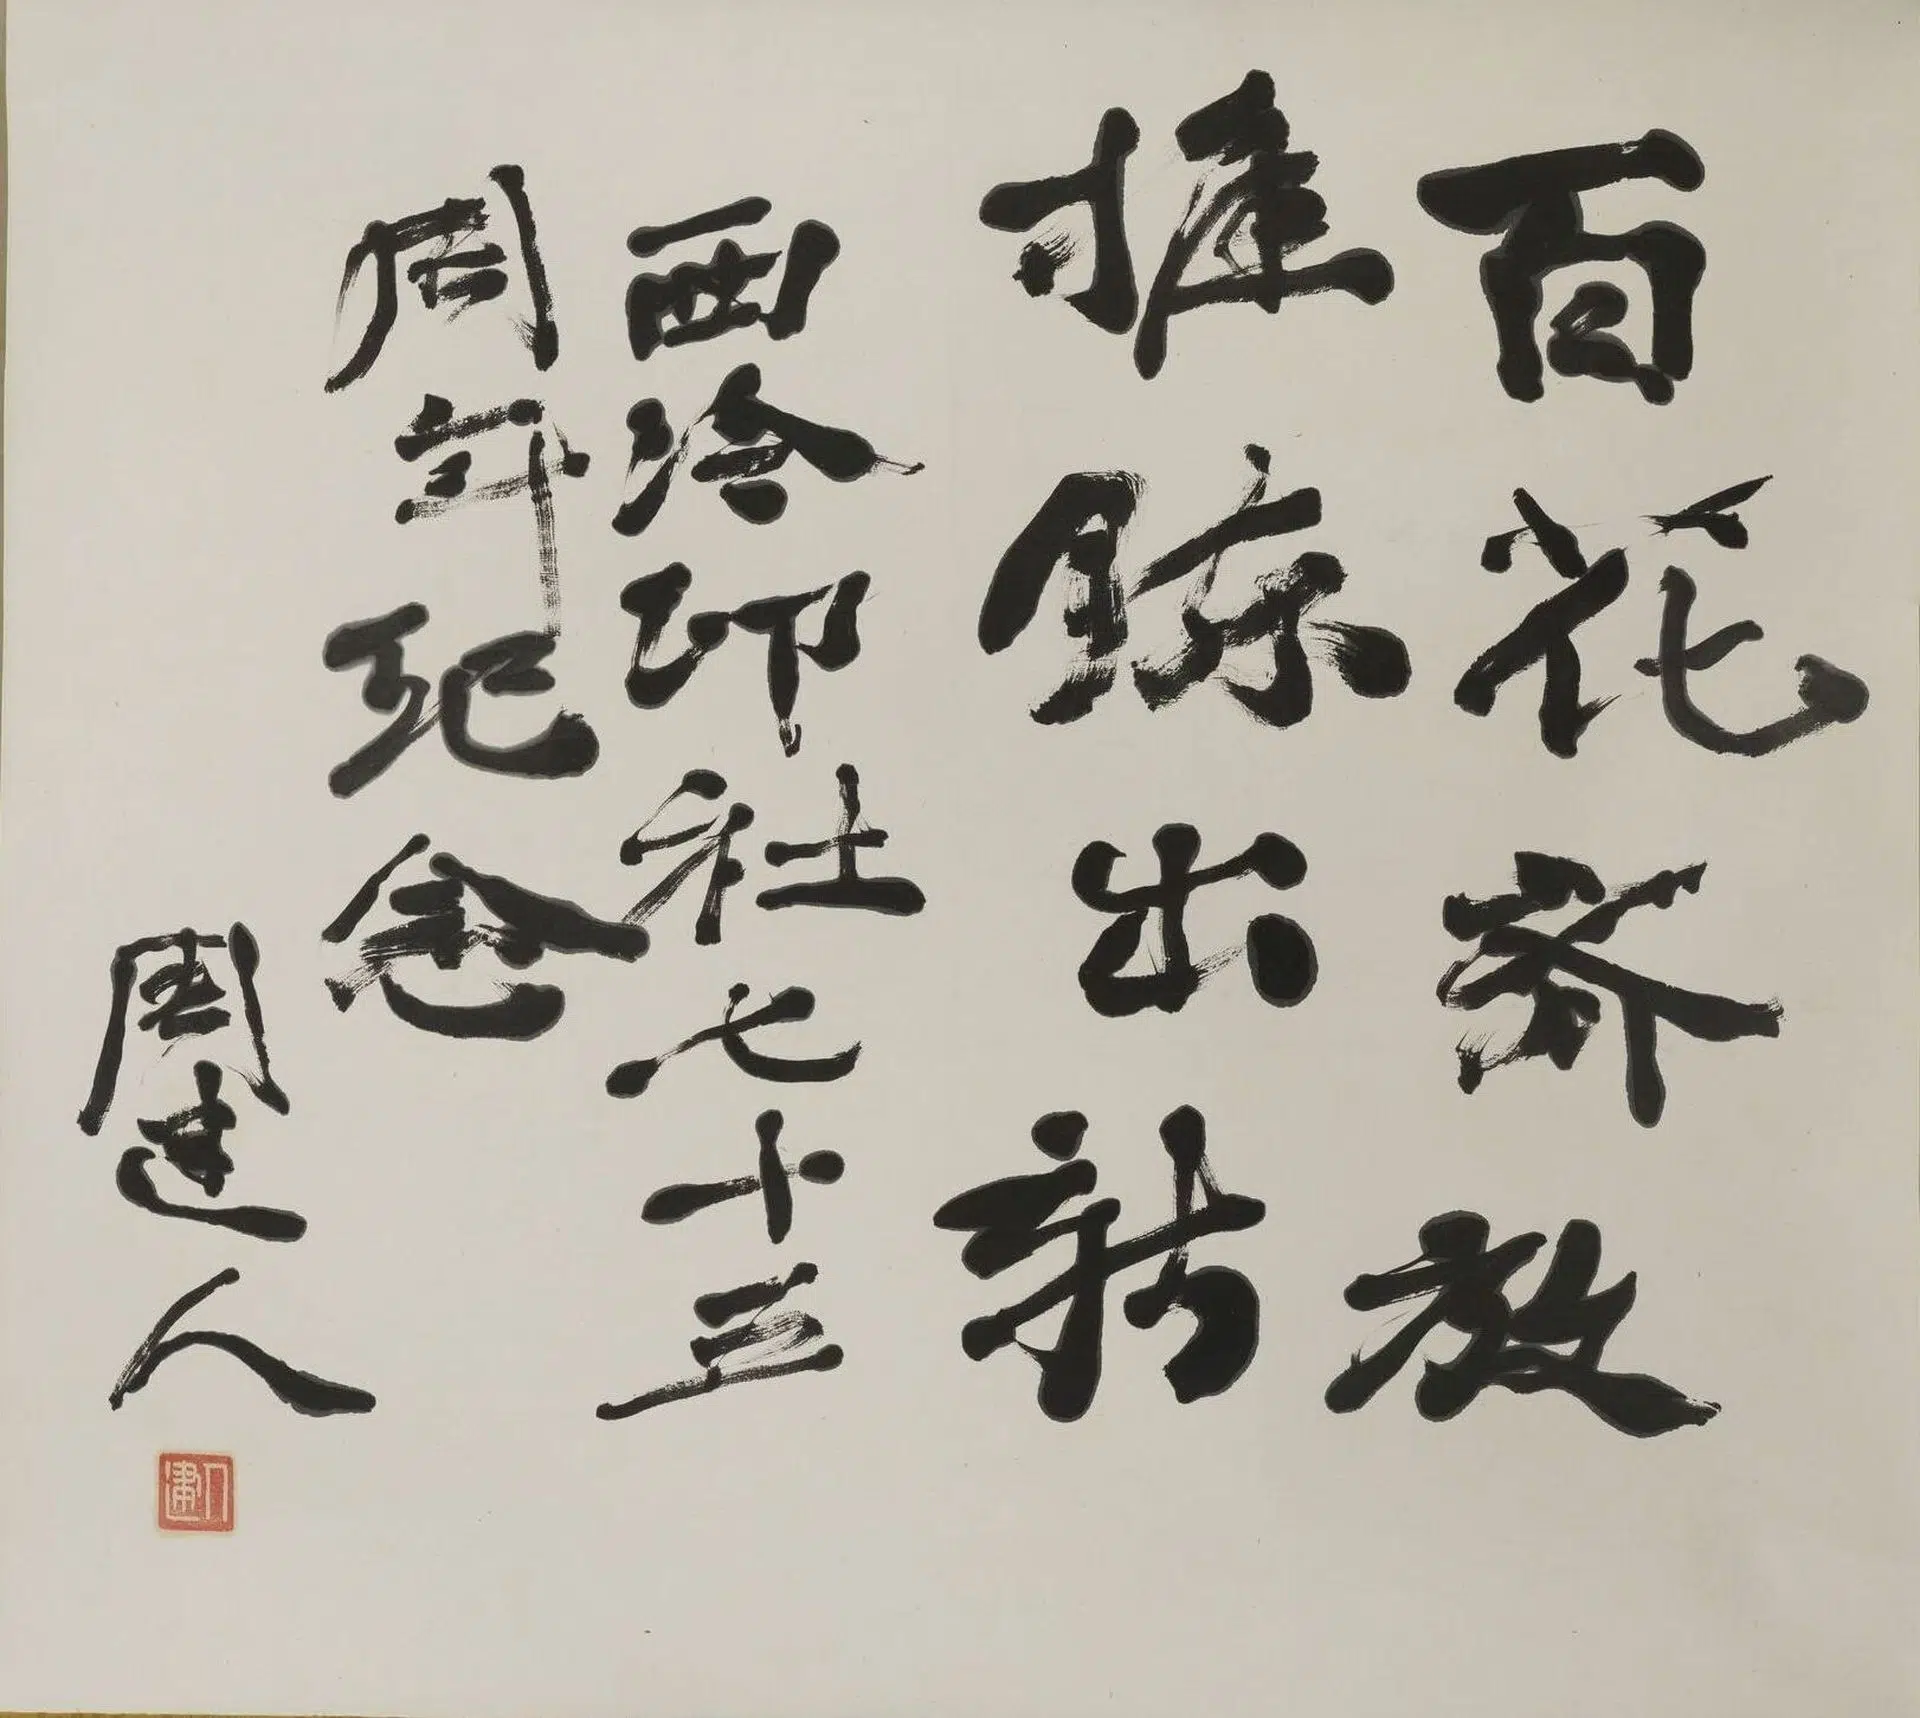 百花齐放
推陈出新
西泠印社七十五
周年纪念
周建人
建人